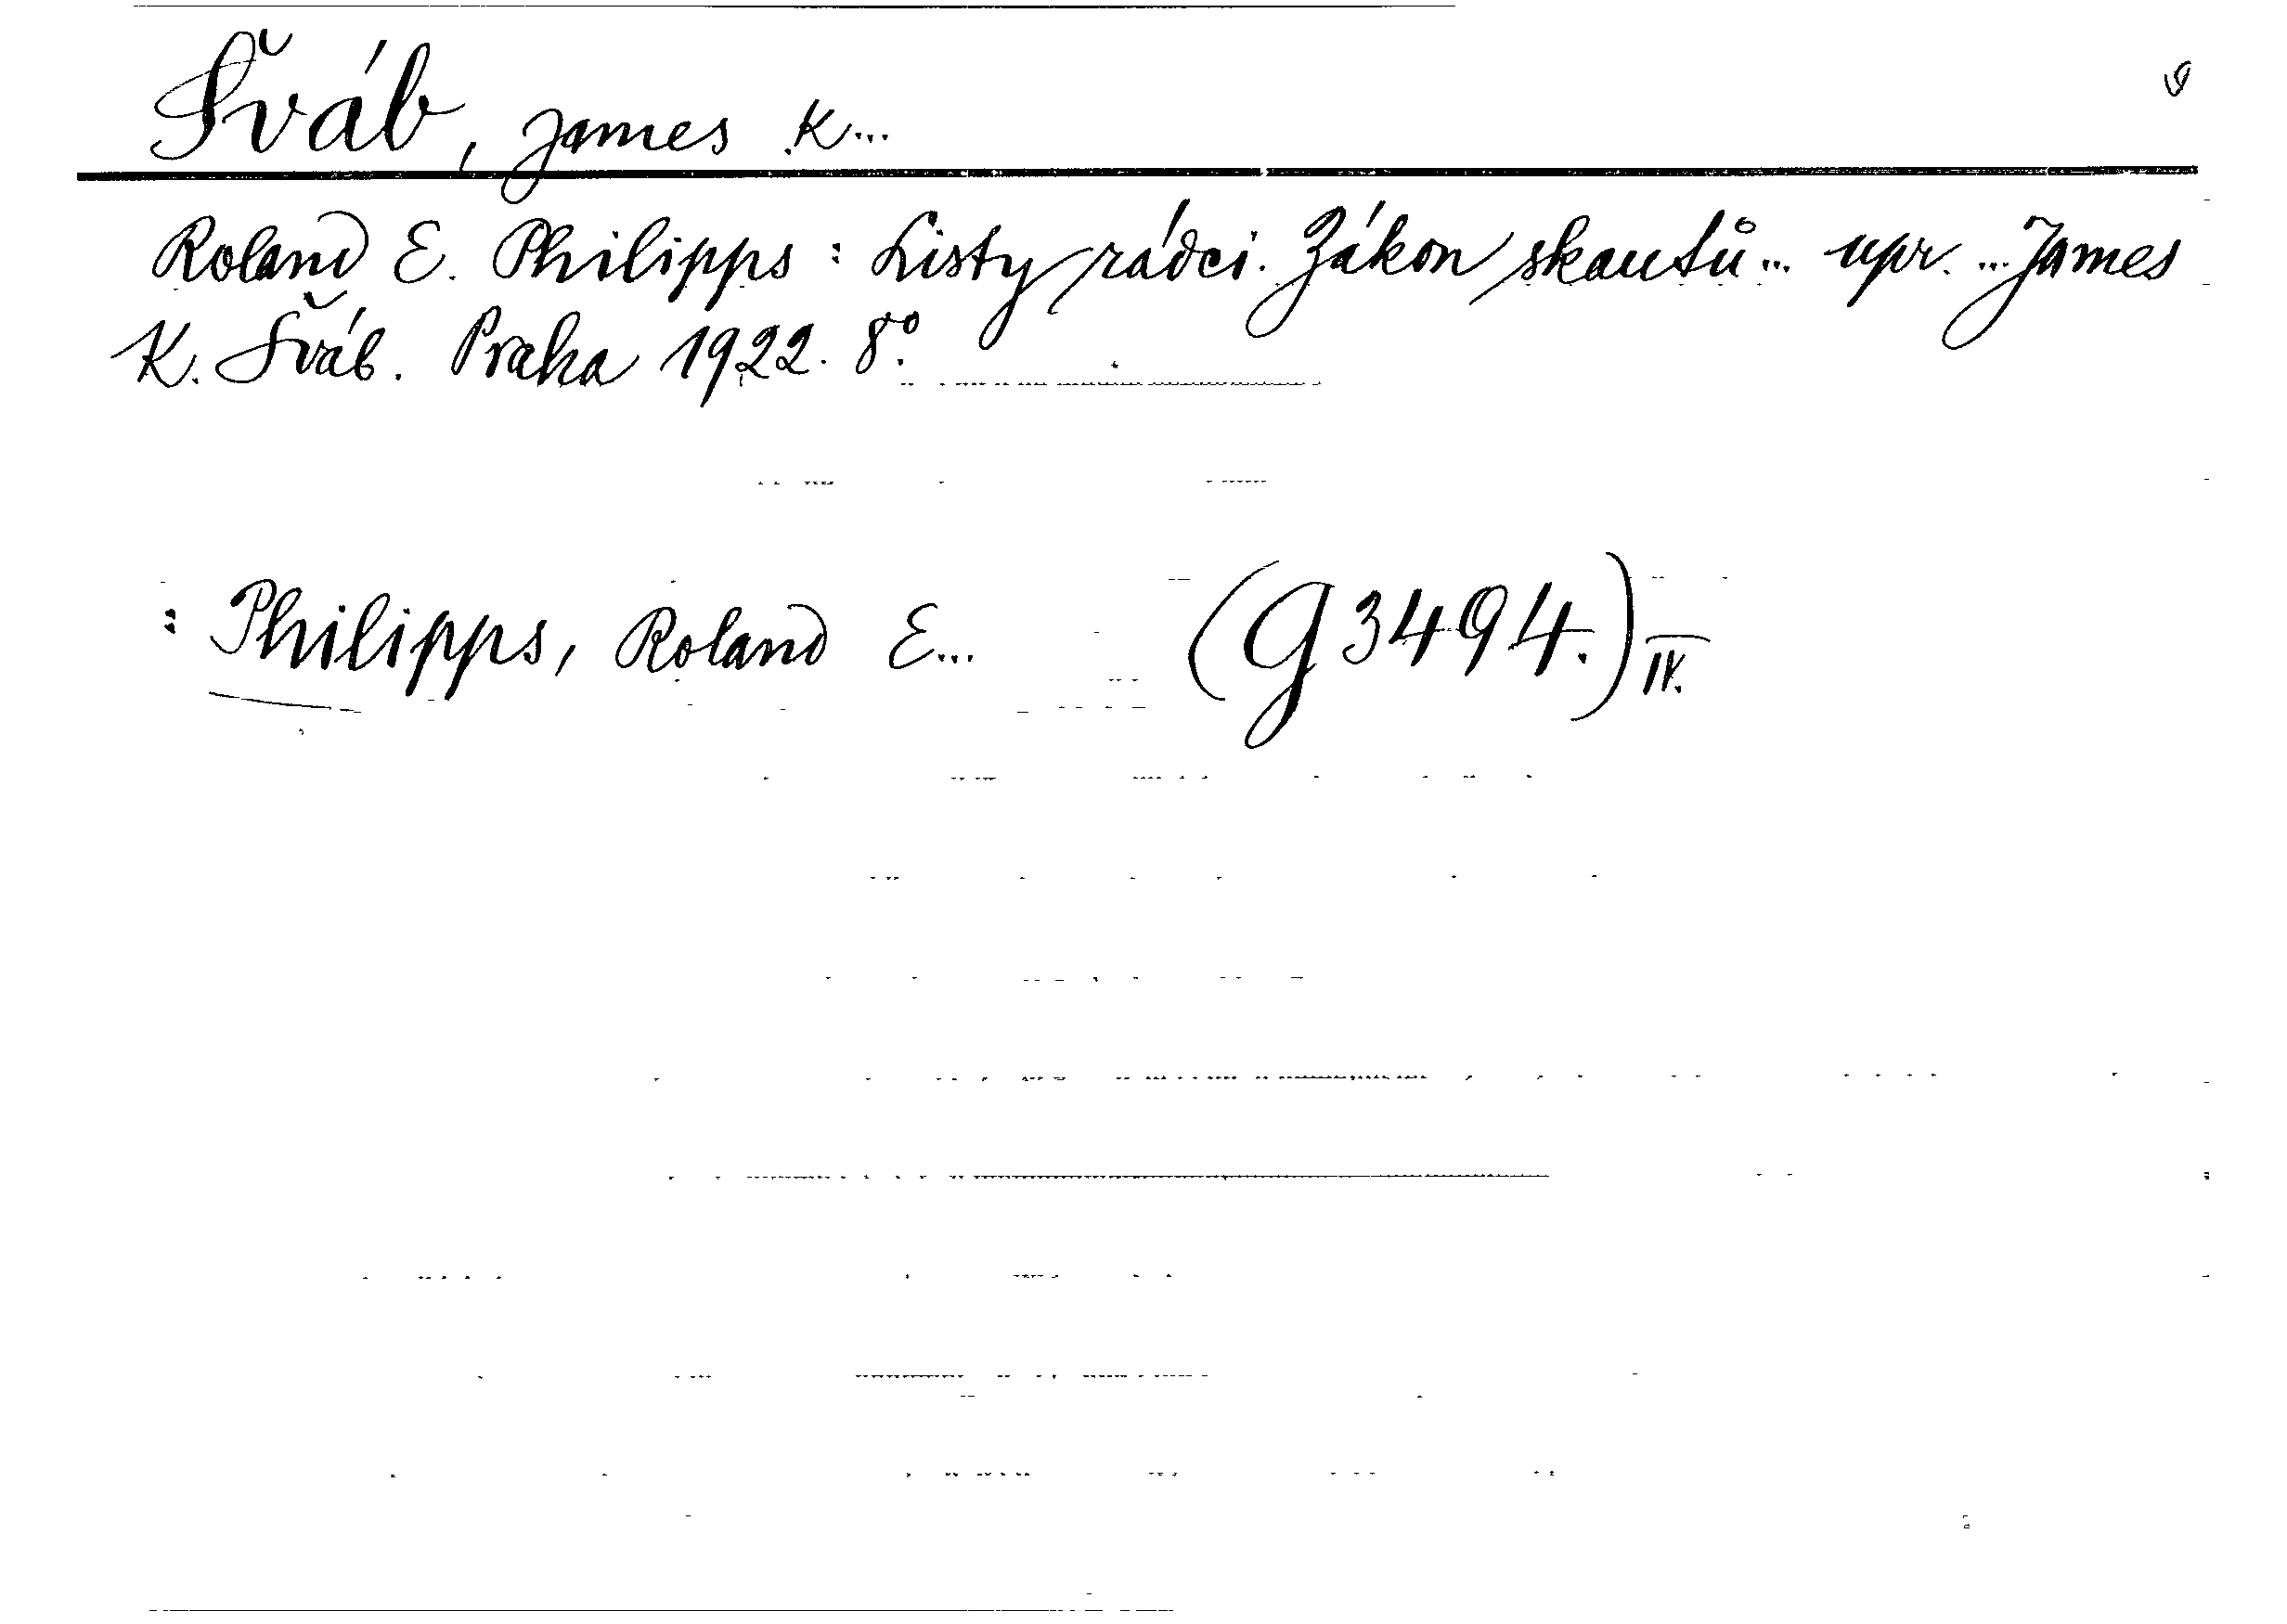 Šváb, James K...
Roland E. Philipps : Listy rádci. Zákon skautů... upr. ... James
K. Šváb. Praha 1922. 8°.
: Philipps, Roland E... (G 3494.) IV.